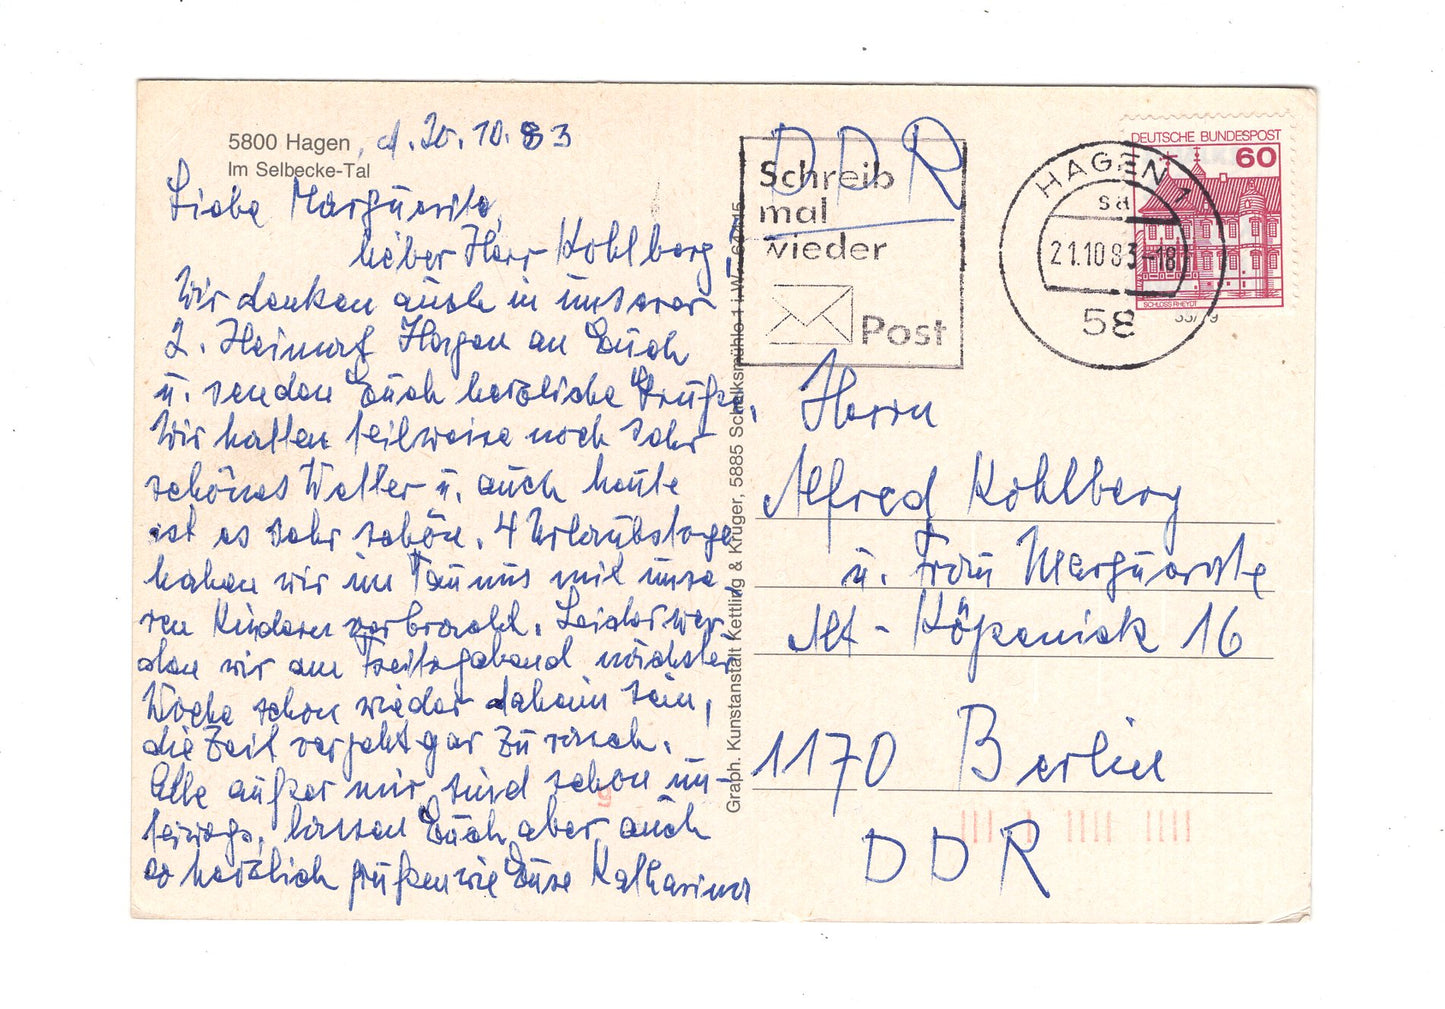 5800 Hagen, d. 20.10.83
Im Selbecke-Tal
Liebe Marguerite,
lieber Herr Kohlberg!
Wir denken auch in unserer
2. Heimat Hagen an Euch
u. senden Euch herzliche Grüße.
Wir hatten teilweise noch sehr
schönes Wetter u. auch heute
ist es sehr schön. 4 Urlaubstage
haben wir im Taunus mit unse-
ren Kindern verbracht. Leider wer-
den wir am Freitagabend nächster
Woche schon wieder daheim sein,
die Zeit vergeht gar zu rasch.
Alle außer mir, sind schon un-
terwegs, lassen Euch aber auch
so herzlich grüßen wie Eure Katharina
Graph. Kunstanstalt Kettling & Krüger, 5885 Schalksmühle 1 i. W.
DDR
Schreib
mal
wieder
Post
HAGEN 1
sa
21.10.83-18
58
DEUTSCHE BUNDESPOST
60
SCHLOSS RHEYDT
Herrn
Alfred Kohlberg
u. Frau Marguerite
Alt-Köpenick 16
1170 Berlin
DDR